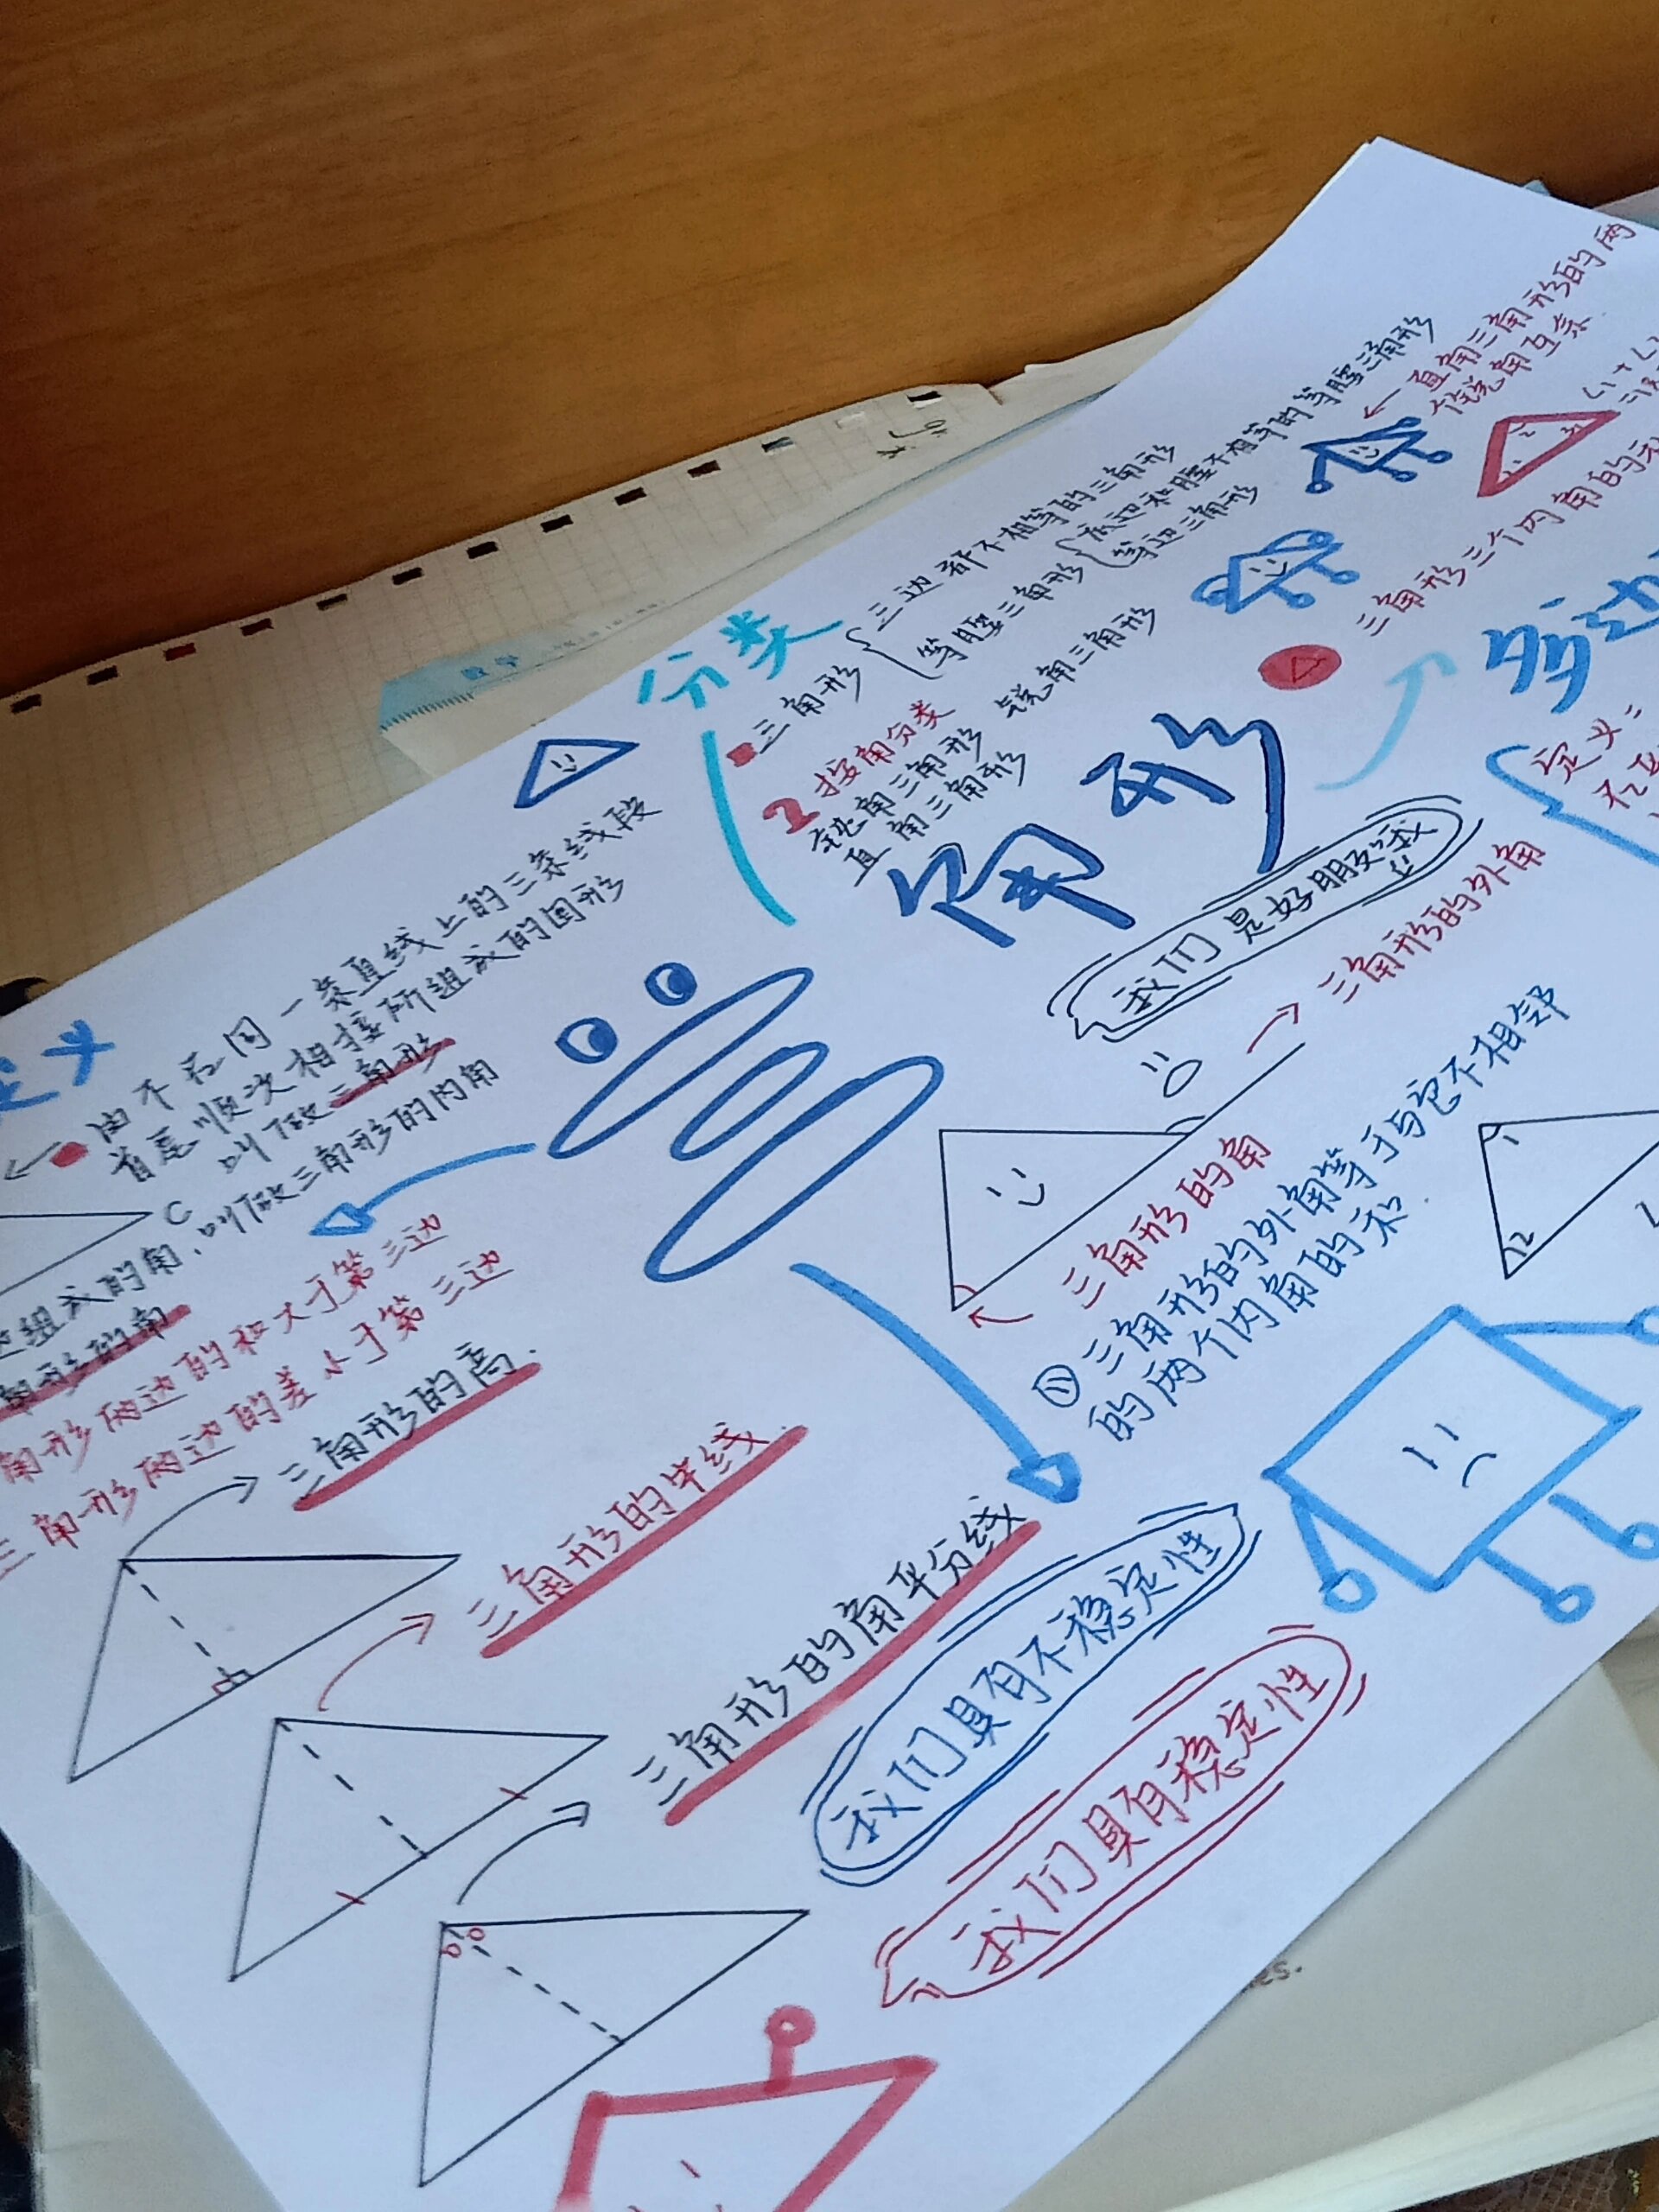 三角形
分类
三角形
三边都不相等的三角形
等腰三角形
底边和腰不相等的等腰三角形
等边三角形
2 按角分类
钝角三角形 锐角三角形
直角三角形
直角三角形的两
个锐角互余
三角形三个内角的和
多边
定义:
在
定义
由不在同一条直线上的三条线段
首尾顺次相接所组成的图形
叫做三角形
C
组成的角,叫做三角形的内角
角形的角
角形两边的和大于第三边
三角形两边的差小于第三边
三角形的高.
三角形的中线.
三角形的角平分线
我们是好朋友哦
三角形的外角
三角形的角
① 三角形的外角等于与它不相邻
的两个内角的和.
1
2
我们具有不稳定性
我们具有稳定性
数学
es.